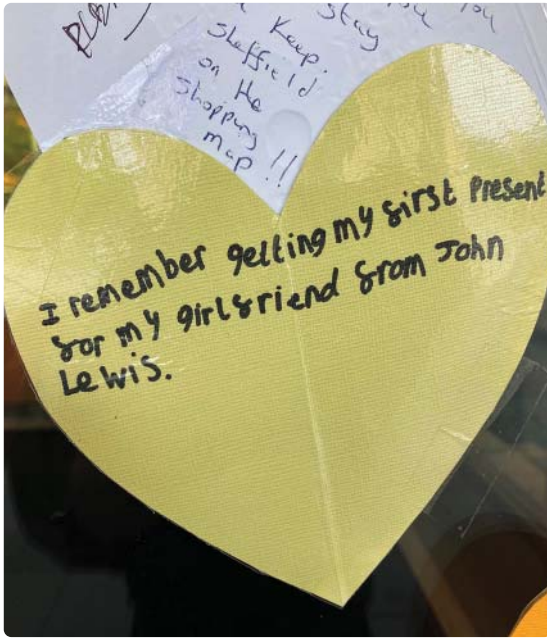 stay
you
you
Keep
Sheffield
on the
shopping
map !!
I remember getting my first present
for my girlfriend from John
Lewis.